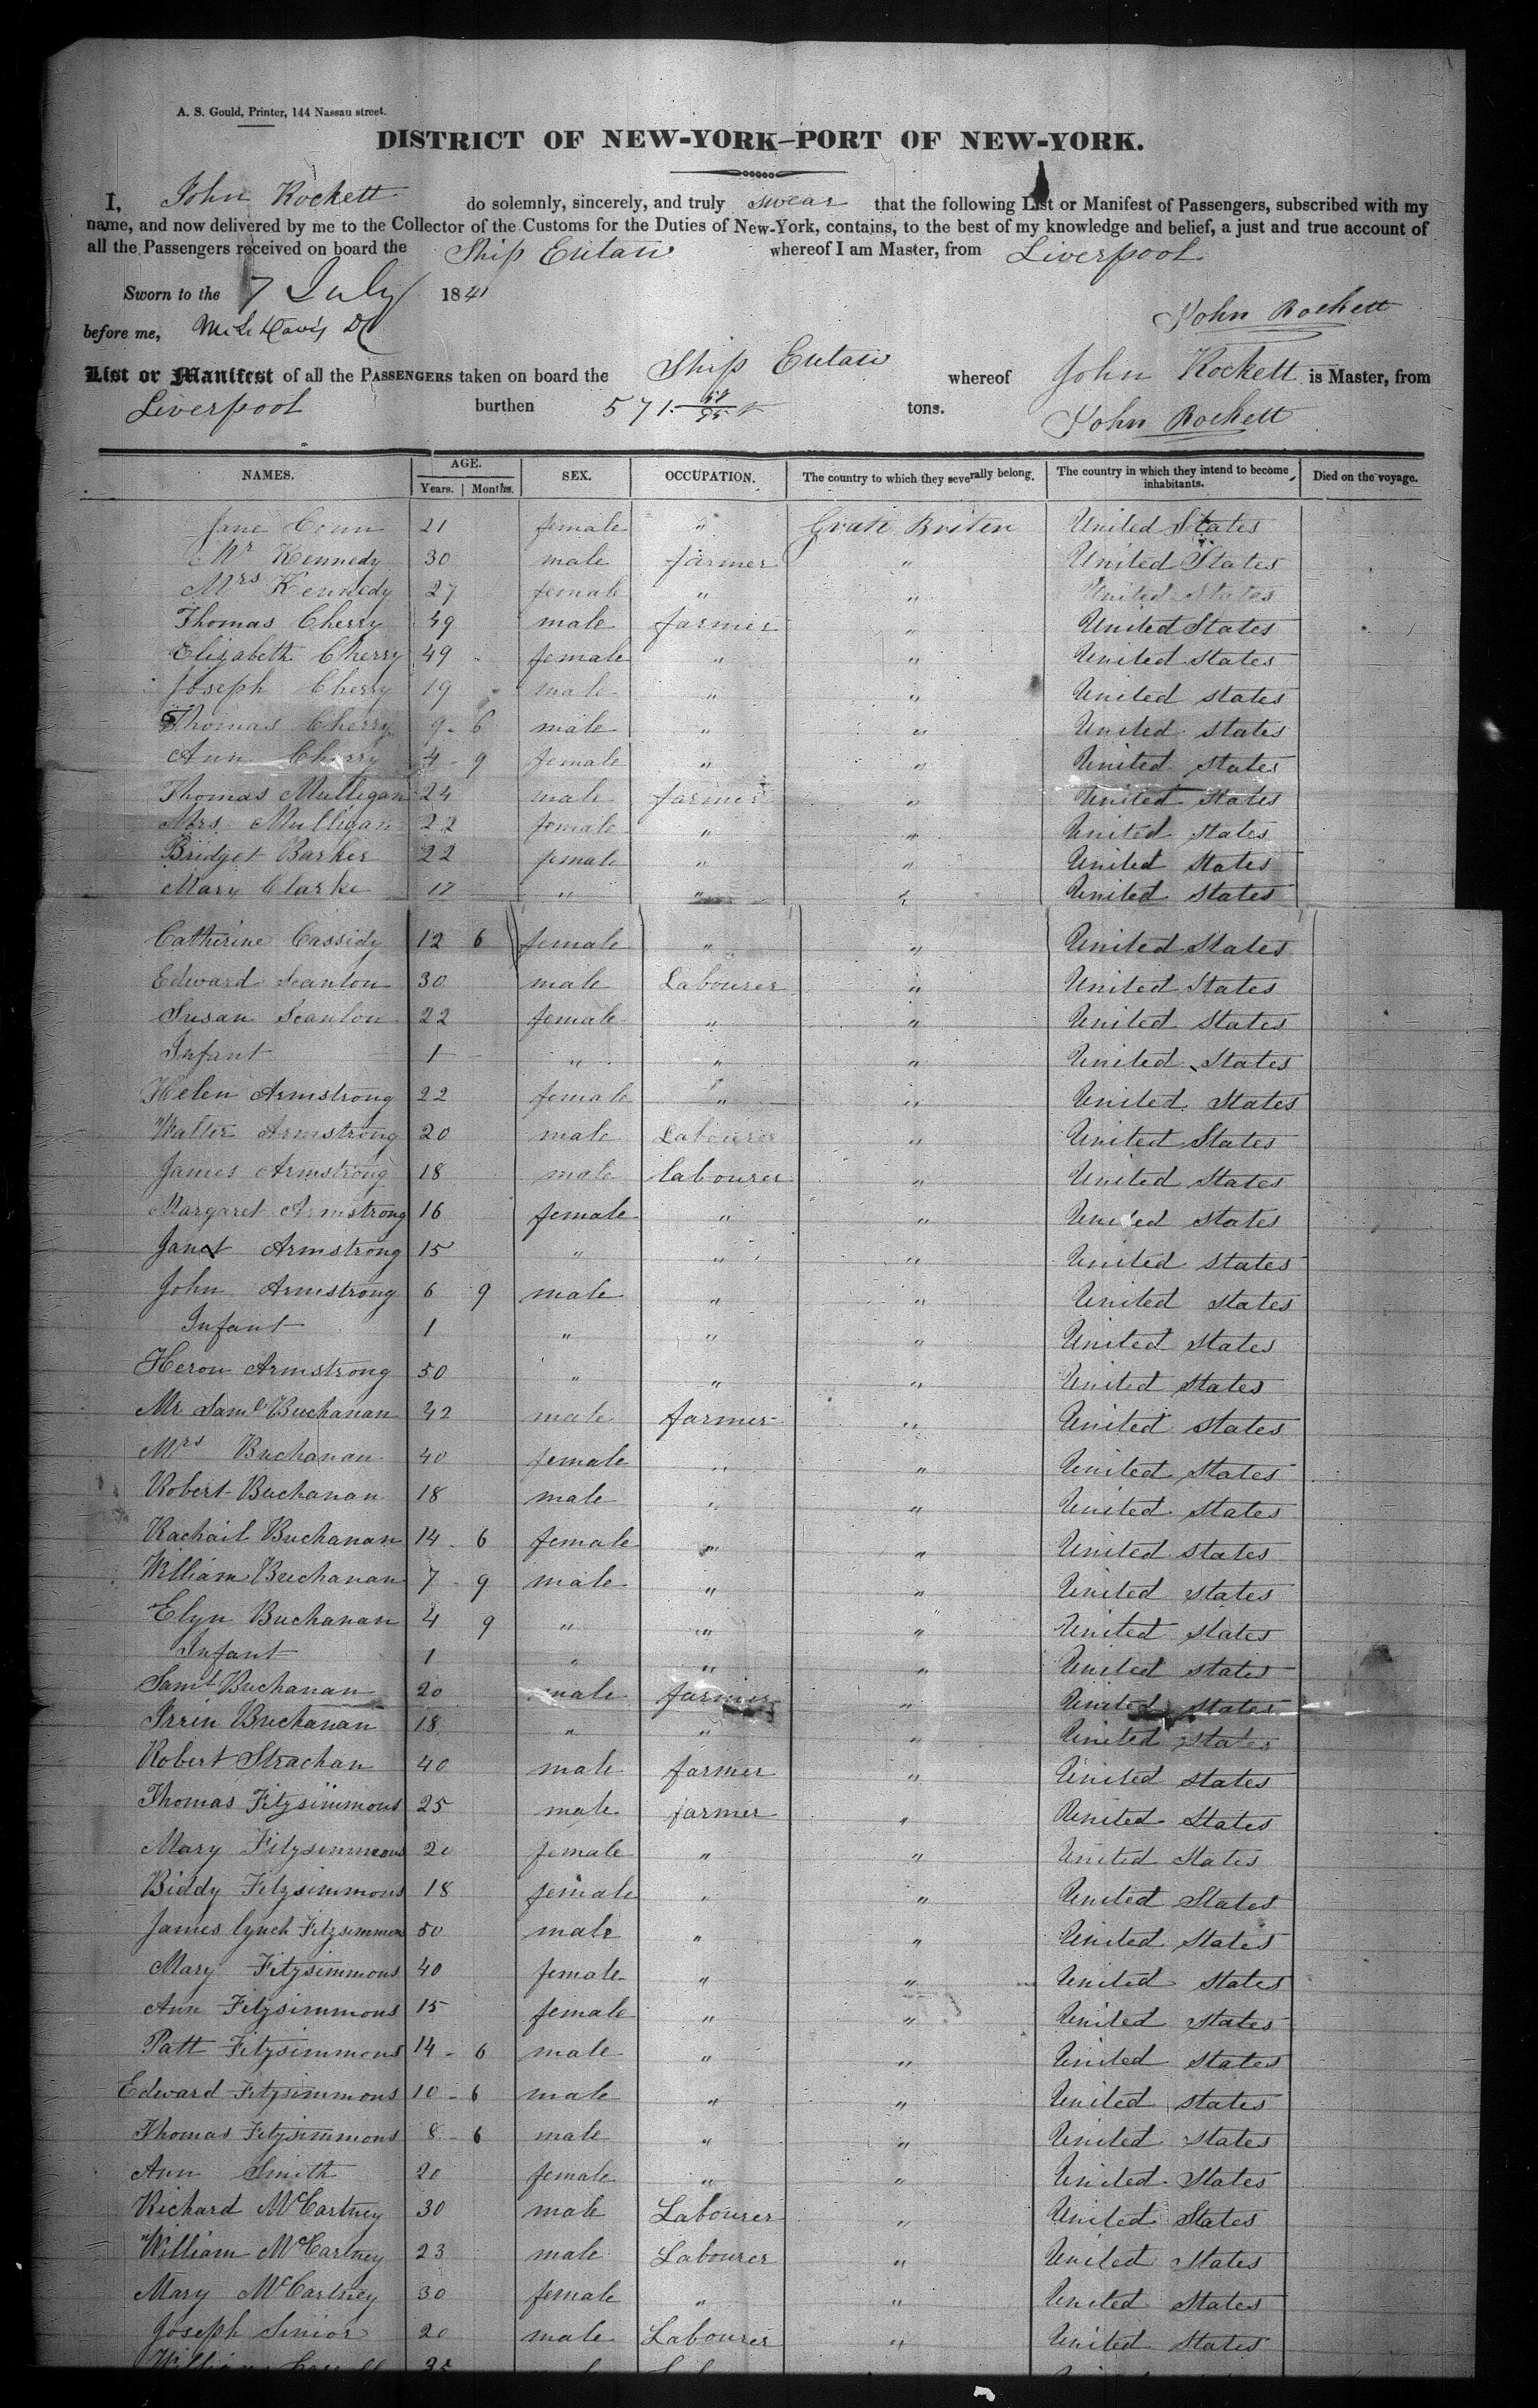 A. S. Gould, Printer, 144 Nassau street.
DISTRICT OF NEW-YORK–PORT OF NEW-YORK.
I, John Rockett do solemnly, sincerely, and truly swear that the following List or Manifest of Passengers, subscribed with my
name, and now delivered by me to the Collector of the Customs for the Duties of New-York, contains, to the best of my knowledge and belief, a just and true account of
all the Passengers received on board the Ship Eutaw whereof I am Master, from Liverpool
Sworn to the 7 July 1841
John Rockett
before me, Davis
List or Manifest of all the PASSENGERS taken on board the Ship Eutaw whereof John Rockett is Master, from
Liverpool burthen 571 tons. John Rockett
NAMES. AGE. Years. Months. SEX. OCCUPATION. The country to which they severally belong. The country in which they intend to become inhabitants. Died on the voyage.
Jane 21 female " Grate Briten United States
Mr Kennedy 30 male farmer " United States
Mrs Kennedy 27 female " " United States
Thomas Cherry 49 male farmer " United States
Elizabeth Cherry 49 female " " United States
Joseph Cherry 19 male " " United states
Thomas Cherry 9 - 6 male " " United states
Ann Cherry 4 - 9 female " " United states
Thomas Mulligan 24 male farmer " United States
Mrs Mulligan 22 female " " United states
Bridget Barker 22 female " " United States
Mary Clarke 17 " " " United States
Catherine Cassidy 12 6 female " " United States
Edward Scanlon 30 male Labourer " United States
Susan Scanlon 22 female " " United States
Infant 1 " " " United States
Helen Armstrong 22 female " " United States
Walter Armstrong 20 male Labourer " United States
James Armstrong 18 male labourer " United States
Margaret Armstrong 16 female " " United States
Janet Armstrong 15 " " " United States
John Armstrong 6 9 male " " United states
Infant 1 " " " United states
Heron Armstrong 50 " " " United States
Mr Saml Buchanan 42 male farmer " United States
Mrs Buchanan 40 female " " United States
Robert Buchanan 18 male " " United States
Rachail Buchanan 14 - 6 female " " United states
William Buchanan 7 - 9 male " " United states
Elyn Buchanan 4 9 " " " United states
Infant 1 " " " United states
Saml Buchanan 20 male farmer " United States
Irrin Buchanan 18 " " " United States
Robert Strachan 40 male farmer " United States
Thomas Fitzsimmons 25 male farmer " United States
Mary Fitzsimmons 20 female " " United States
Biddy Fitzsimmons 18 female " " United States
James lynch Fitzsimmon 50 male " " United States
Mary Fitzsimmons 40 female " " United states
Ann Fitzsimmons 15 female " " United States
Patt Fitzsimmons 14 - 6 male " " United states
Edward Fitzsimmons 10 - 6 male " " United states
Thomas Fitzsimmons 8 - 6 male " " United States
Ann Smith 20 female " " United States
Richard McCartney 30 male Labourer " United States
William McCartney 23 male Labourer " United States
Mary McCartney 30 female " " United States
Joseph Senior 20 male Labourer " United States
William